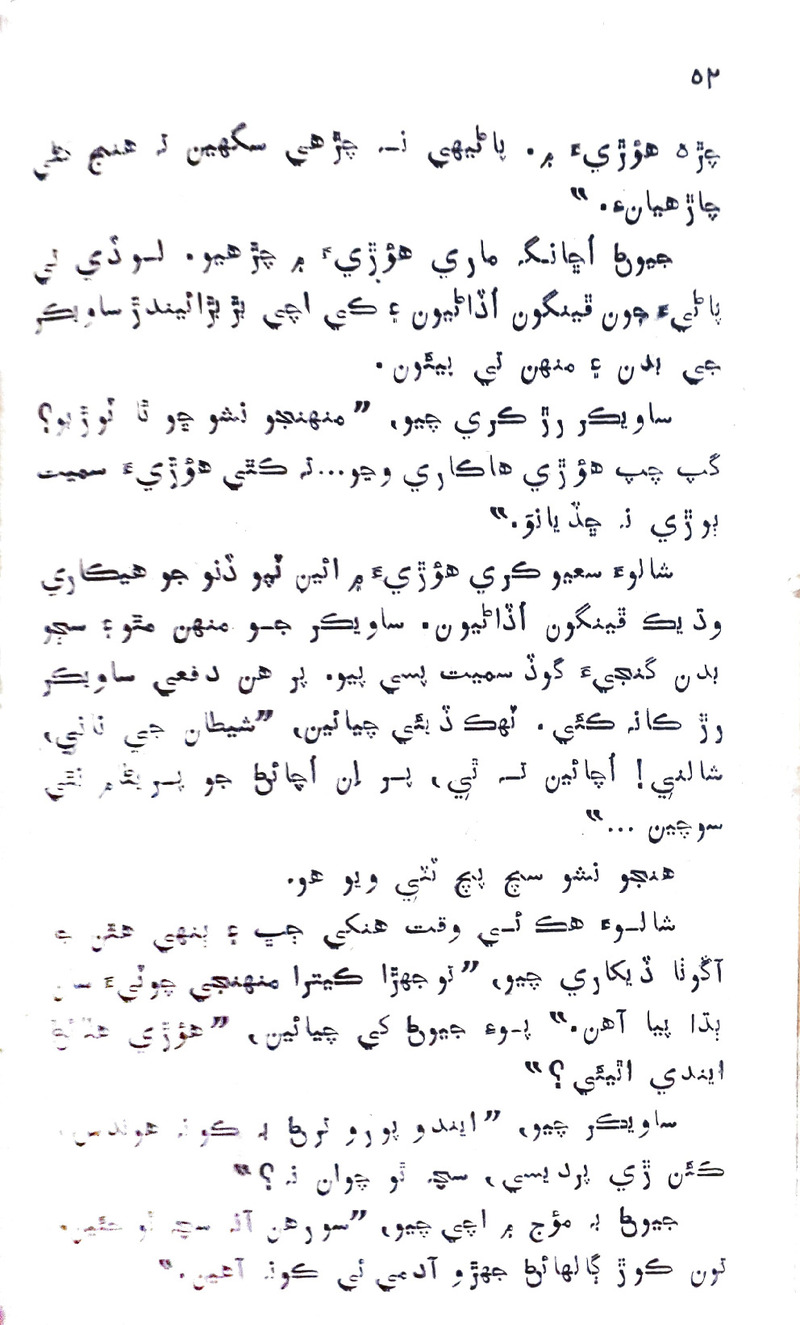 ٥٢
چڙھ هوڙيءَ ۾. پاڻيهي نہ چڙهي سگهين تہ هنج ڀڻي
چاڙهيانءِ.“
جيوڻ اُڇانگہ ماري هوڙيءَ ۾ چڙهيو. لوڏي تي
پاڻيءَ جون ڦينگون اُڏاڻيون ۽ ڪي اچي بڙبڙائيندڙ ساويڪر
جي بدن ۽ منهن تي پيئون.
ساويڪر رڙ ڪري چيو، ”منهنجو نشو ڇو ٿا ٽوڙيو؟
گپ چپ هوڙي هاڪاري وڃو...تہ ڪٿي هوڙيءَ سميت
ٻوڙي نہ ڇڏيانوَ.“
شالوءَ سعيو ڪري هوڙيءَ ۾ ائين ٽپو ڏنو جو هيڪاري
وڌيڪ ڦينگون اُڏاڻيون. ساويڪر جو منهن مٿو ۽ سڄو
بدن گنجيءَ گوڏ سميت پسي پيو. پر هن دفعي ساويڪر
رڙ ڪانہ ڪئي. ٽهڪ ڏيئي چيائين، ”شيطان جي ناني،
شالني! اُڇائين تہ ٿي، پر اِن اُڇائڻ جو پريڻام نٿي
سوچين ...“
هنجو نشو سچ پچ ٽٽي ويو هو.
شالوءَ هڪ ئي وقت هنکي چپ ۽ ٻنهي هٿن جا
آڱوٺا ڏيکاري چيو، ”توجهڙا ڪيترا منهنجي چوٽيءَ سان
ٻڌا پيا آهن.“ پوءِ جيوڻ کي چيائين، ”هوڙي هلائڻ
ايندي اٿيئي؟“
ساويڪر چيو، ”ايندو پورو ترڻ بہ ڪونہ هوندس.
ڪئن ڙي پرديسي، سچہ ٿو چوان نہ؟“
جيوڻ بہ موُج ۾ اچي چيو، ”سورهن آنہ سچہ ٿو چئين.
تون ڪوڙ ڳالهائڻ جهڙو آدمي ئي ڪونہ آهين.“